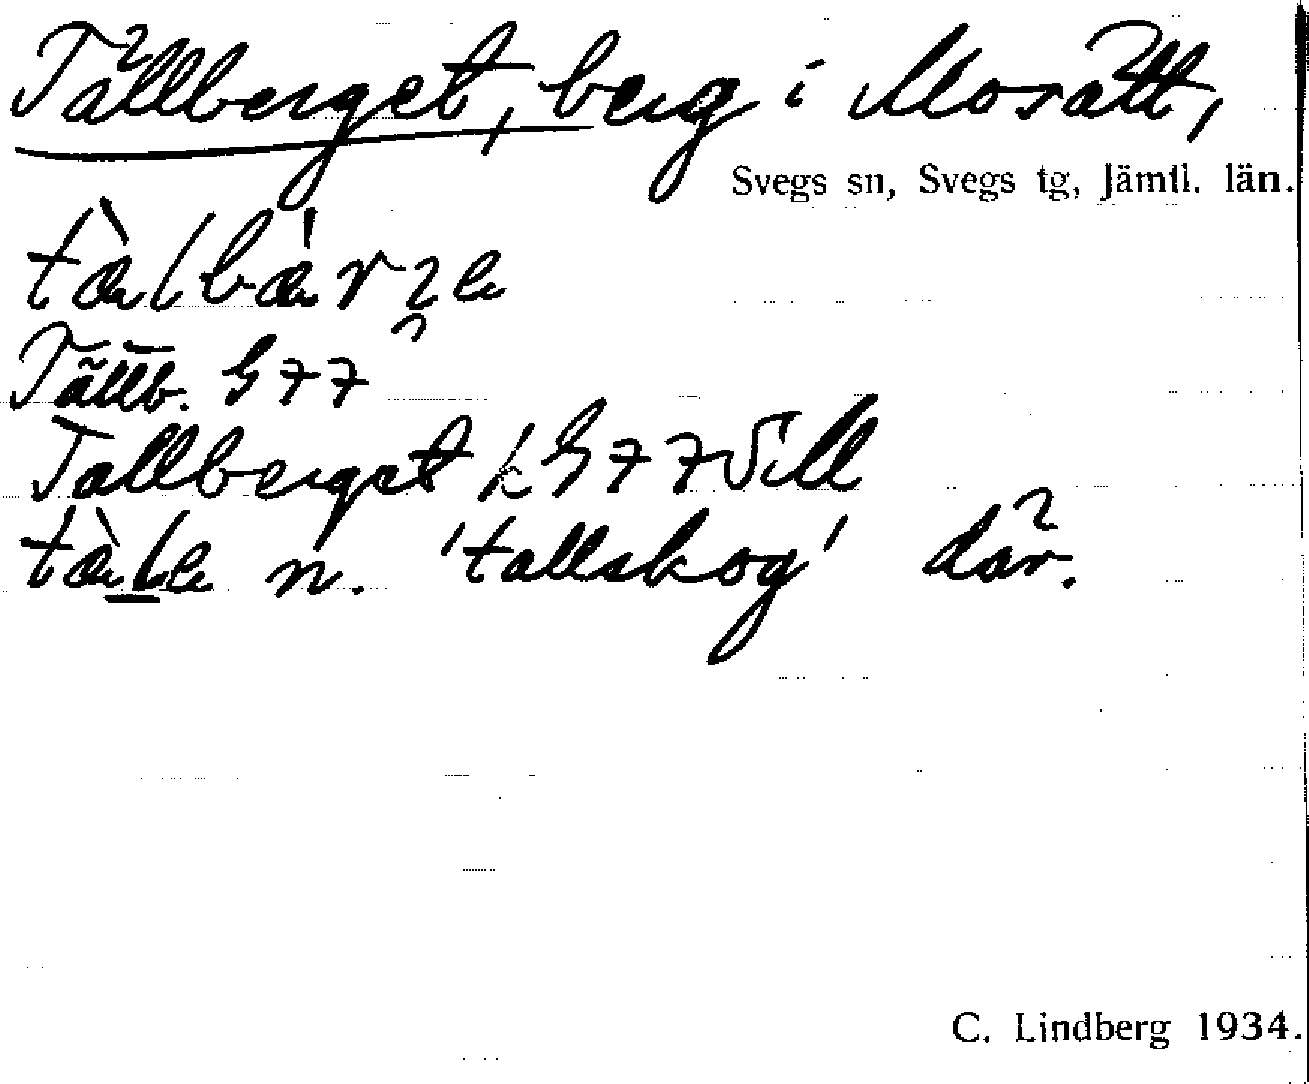 Tällberget, berg i Mosätt,
Svegs sn, Svegs tg, Jämtl. län.
Tällb. G 77
Tallberget k G 77 Vill
n. 'tallskog' där.
C. Lindberg 1934.